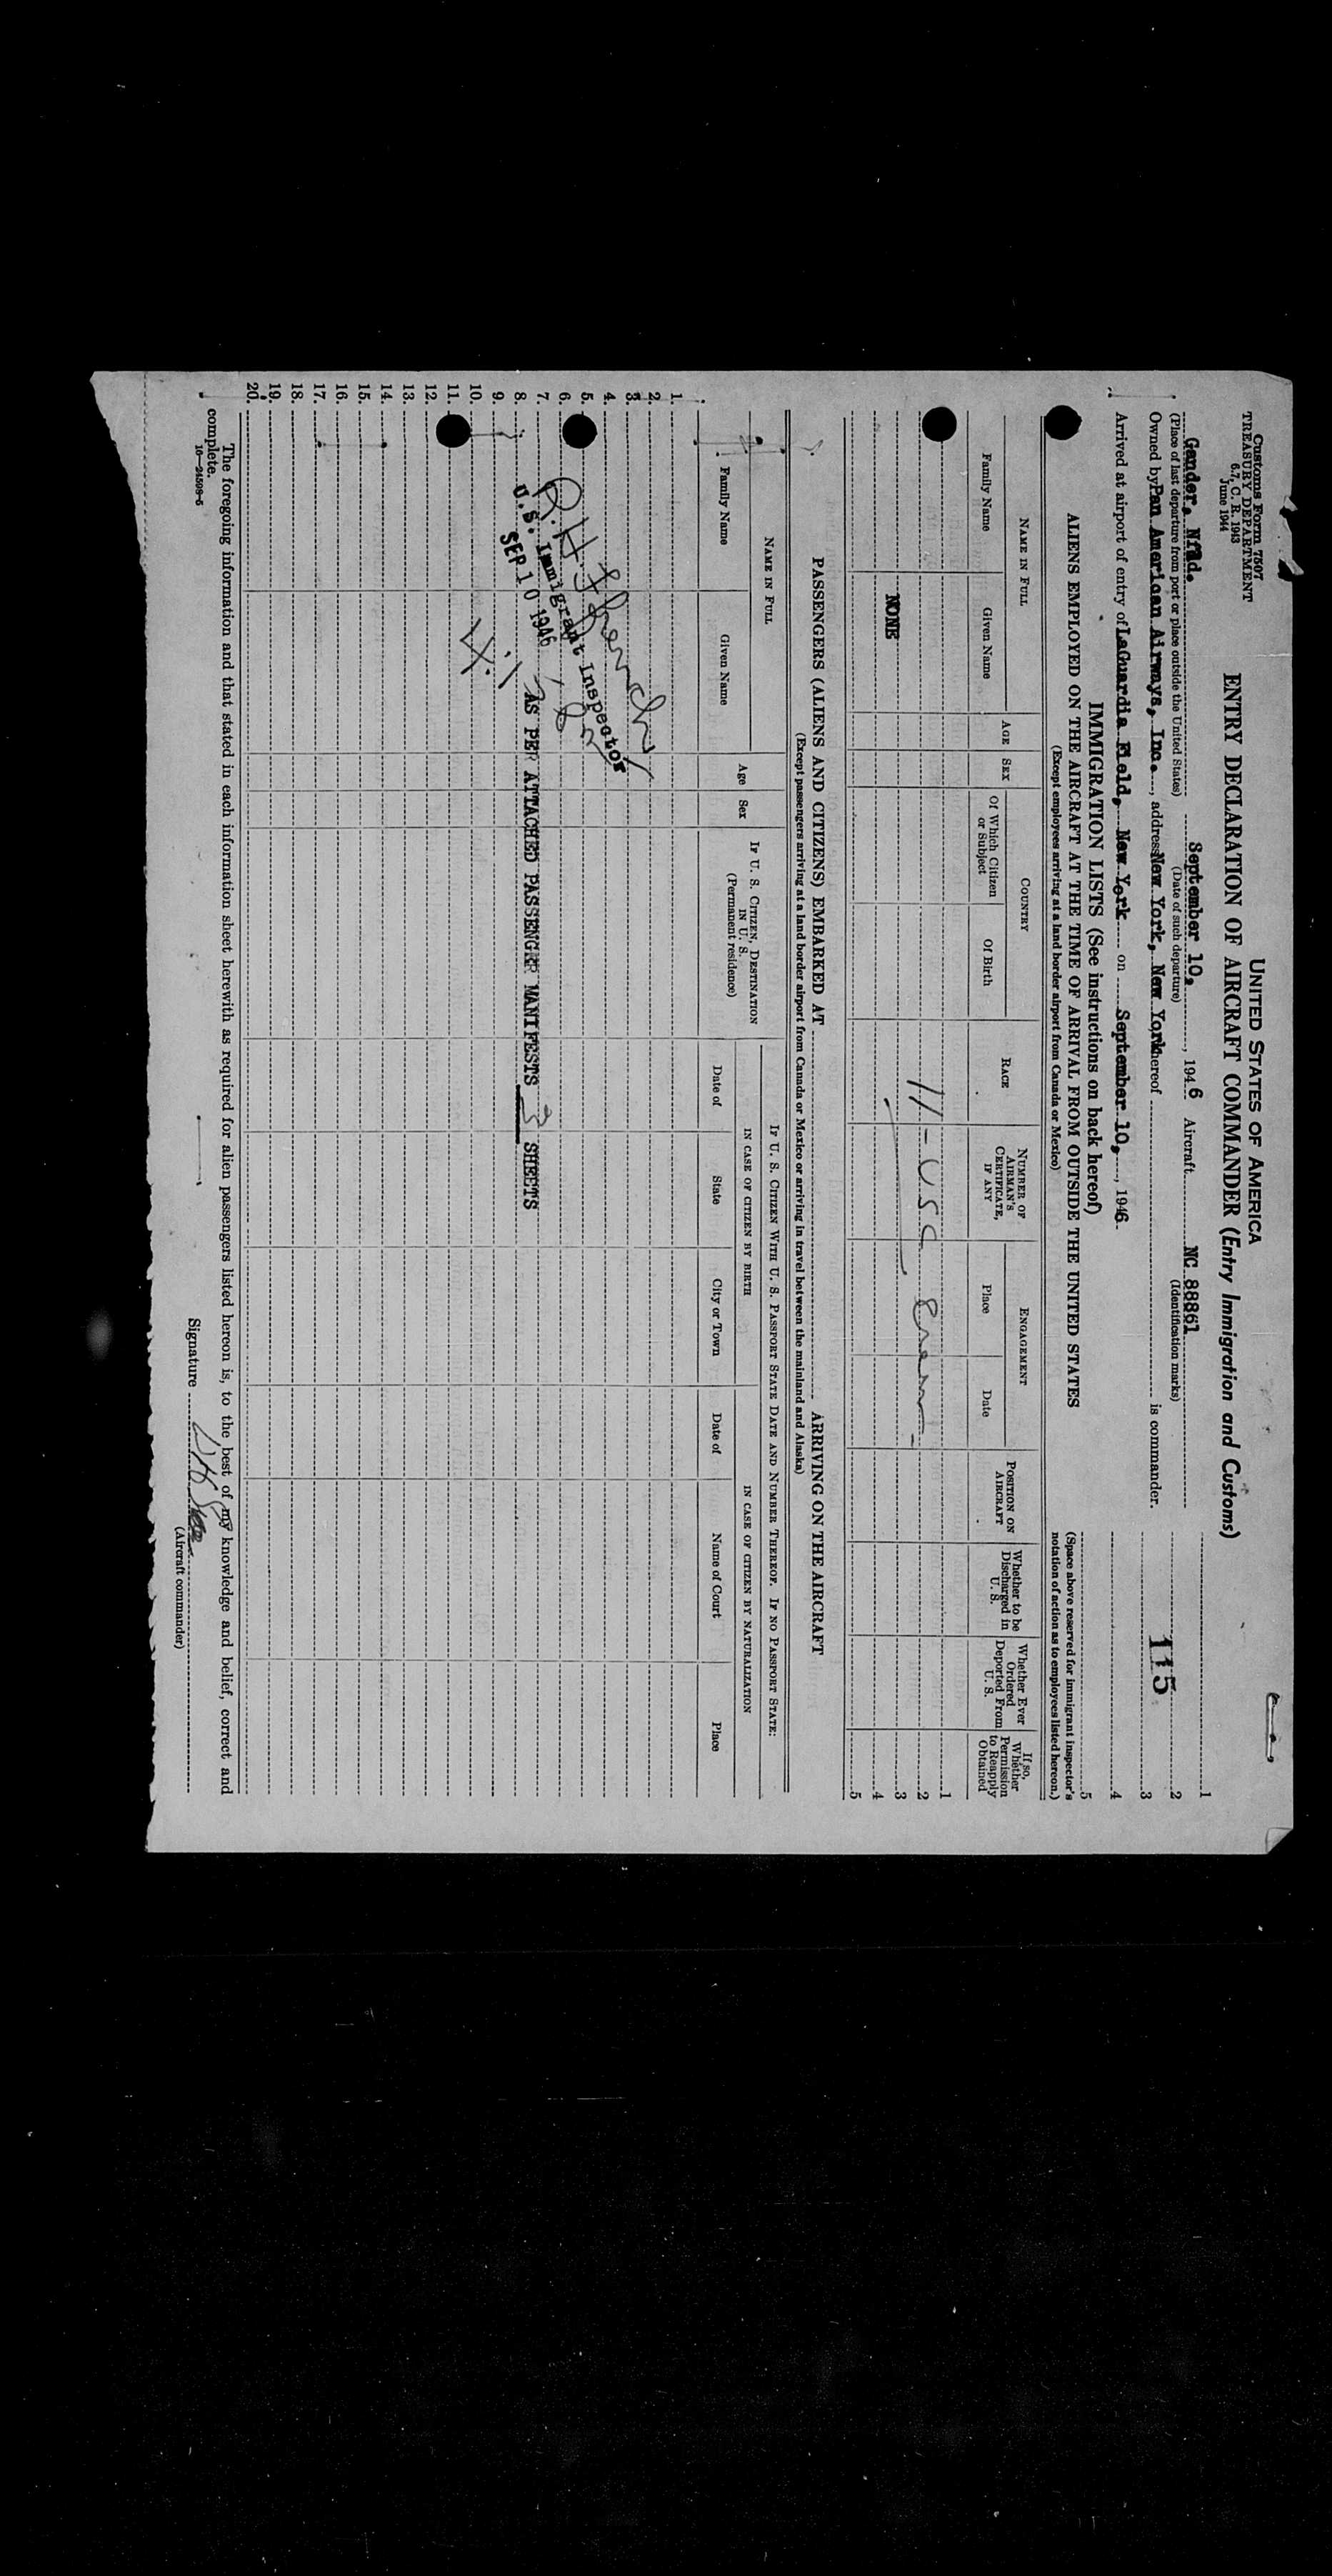 Customs Form 7507
TREASURY DEPARTMENT
6.7, C. R. 1943
June 1944
UNITED STATES OF AMERICA
ENTRY DECLARATION OF AIRCRAFT COMMANDER (Entry Immigration and Customs)
Gander, Nfld. September 10, 1946 Aircraft NC 88861
(Place of last departure from port or place outside the United States) (Date of such departure) (Identification marks)
Owned by Pan American Airways, Inc., address New York, New York hereof is commander.
Arrived at airport of entry of LaGuardia Field, New York on September 10, 1946.
1
2
3
4
5
115
(Space above reserved for immigrant inspector's
notation of action as to employees listed hereon.)
IMMIGRATION LISTS (See instructions on back hereof)
ALIENS EMPLOYED ON THE AIRCRAFT AT THE TIME OF ARRIVAL FROM OUTSIDE THE UNITED STATES
(Except employees arriving at a land border airport from Canada or Mexico)
NAME IN FULL
Family Name
Given Name
AGE
SEX
COUNTRY
Of Which Citizen
or Subject
Of Birth
RACE
NUMBER OF
AIRMAN'S
CERTIFICATE,
IF ANY
ENGAGEMENT
Place
Date
POSITION ON
AIRCRAFT
Whether to be
Discharged in
U. S.
Whether Ever
Ordered
Deported From
U. S.
If so,
Whether
Permission
to Reapply
Obtained
1
2
11 - USC Crew -
3
NONE
4
5
PASSENGERS (ALIENS AND CITIZENS) EMBARKED AT ARRIVING ON THE AIRCRAFT
(Except passengers arriving at a land border airport from Canada or Mexico or arriving in travel between the mainland and Alaska)
NAME IN FULL
Family Name
Given Name
Age
Sex
IF U. S. CITIZEN, DESTINATION
IN U. S.
(Permanent residence)
IF U. S. CITIZEN WITH U. S. PASSPORT STATE DATE AND NUMBER THEREOF. IF NO PASSPORT STATE:
IN CASE OF CITIZEN BY BIRTH
Date of
State
City or Town
IN CASE OF CITIZEN BY NATURALIZATION
Date of
Name of Court
Place
1.
2.
3.
4.
5.
6.
7.
8. AS PER ATTACHED PASSENGER MANIFESTS 3 SHEETS
9.
10.
11.
12.
13.
14.
15.
16.
17.
18.
19.
20.
U. S. Immigrant Inspector
SEP 10 1946
The foregoing information and that stated in each information sheet herewith as required for alien passengers listed hereon is, to the best of my knowledge and belief, correct and
complete.
16—24599-5
Signature
(Aircraft commander)